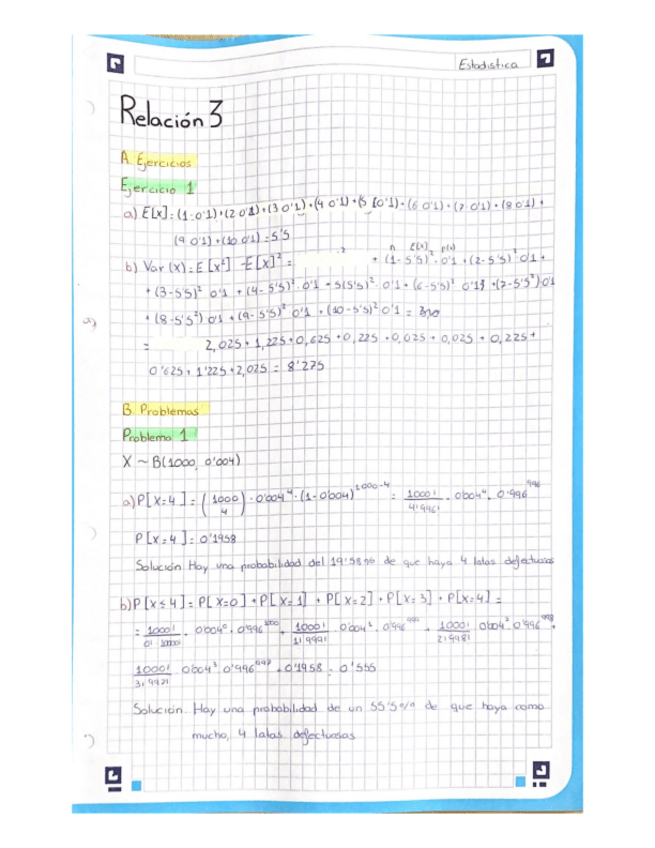 Estadística
Relación 3
A. Ejercicios
Ejercicio 1
a) E[x] = (1·0'1)+(2·0'1)+(3·0'1)+(4·0'1)+(5·0'1)+(6·0'1)+(7·0'1)+(8·0'1)+
(9·0'1)+(10·0'1) = 5'5
n E[x] p(x)
b) Var(X) = E[x²] - E[x]² = + (1-5'5)²·0'1 + (2-5'5)²·0'1 +
+ (3-5'5)²·0'1 + (4-5'5)²·0'1 + 5(5'5)²·0'1 + (6-5'5)²·0'1 + (7-5'5²)·0'1
+ (8-5'5²)·0'1 + (9-5'5)²·0'1 + (10-5'5)²·0'1 =
= 2,025 + 1,225 + 0,625 + 0,225 + 0,025 + 0,025 + 0,225 +
0'625 + 1'225 + 2,025 = 8'275
B. Problemas
Problema 1
X ~ B(1000, 0'004)
a) P[X=4] = (1000 4) · 0'004⁴ · (1-0'004)¹⁰⁰⁰⁻⁴ = 1000!/4!996! · 0'004⁴ · 0'996⁹⁹⁶
P[X=4] = 0'1958
Solución Hay una probabilidad del 19'58% de que haya 4 latas defectuosas
b) P[X≤4] = P[X=0] + P[X=1] + P[X=2] + P[X=3] + P[X=4] =
= 1000!/0! 1000! · 0'004⁰ · 0'996¹⁰⁰⁰ + 1000!/1!999! 0'004¹ · 0'996⁹⁹⁹ + 1000!/2!998! 0'004² 0'996⁹⁹⁸ +
1000!/3!997! 0'004³ 0'996⁹⁹⁷ + 0'1958 = 0'555
Solución. Hay una probabilidad de un 55'5% de que haya como
mucho, 4 latas defectuosas
a)